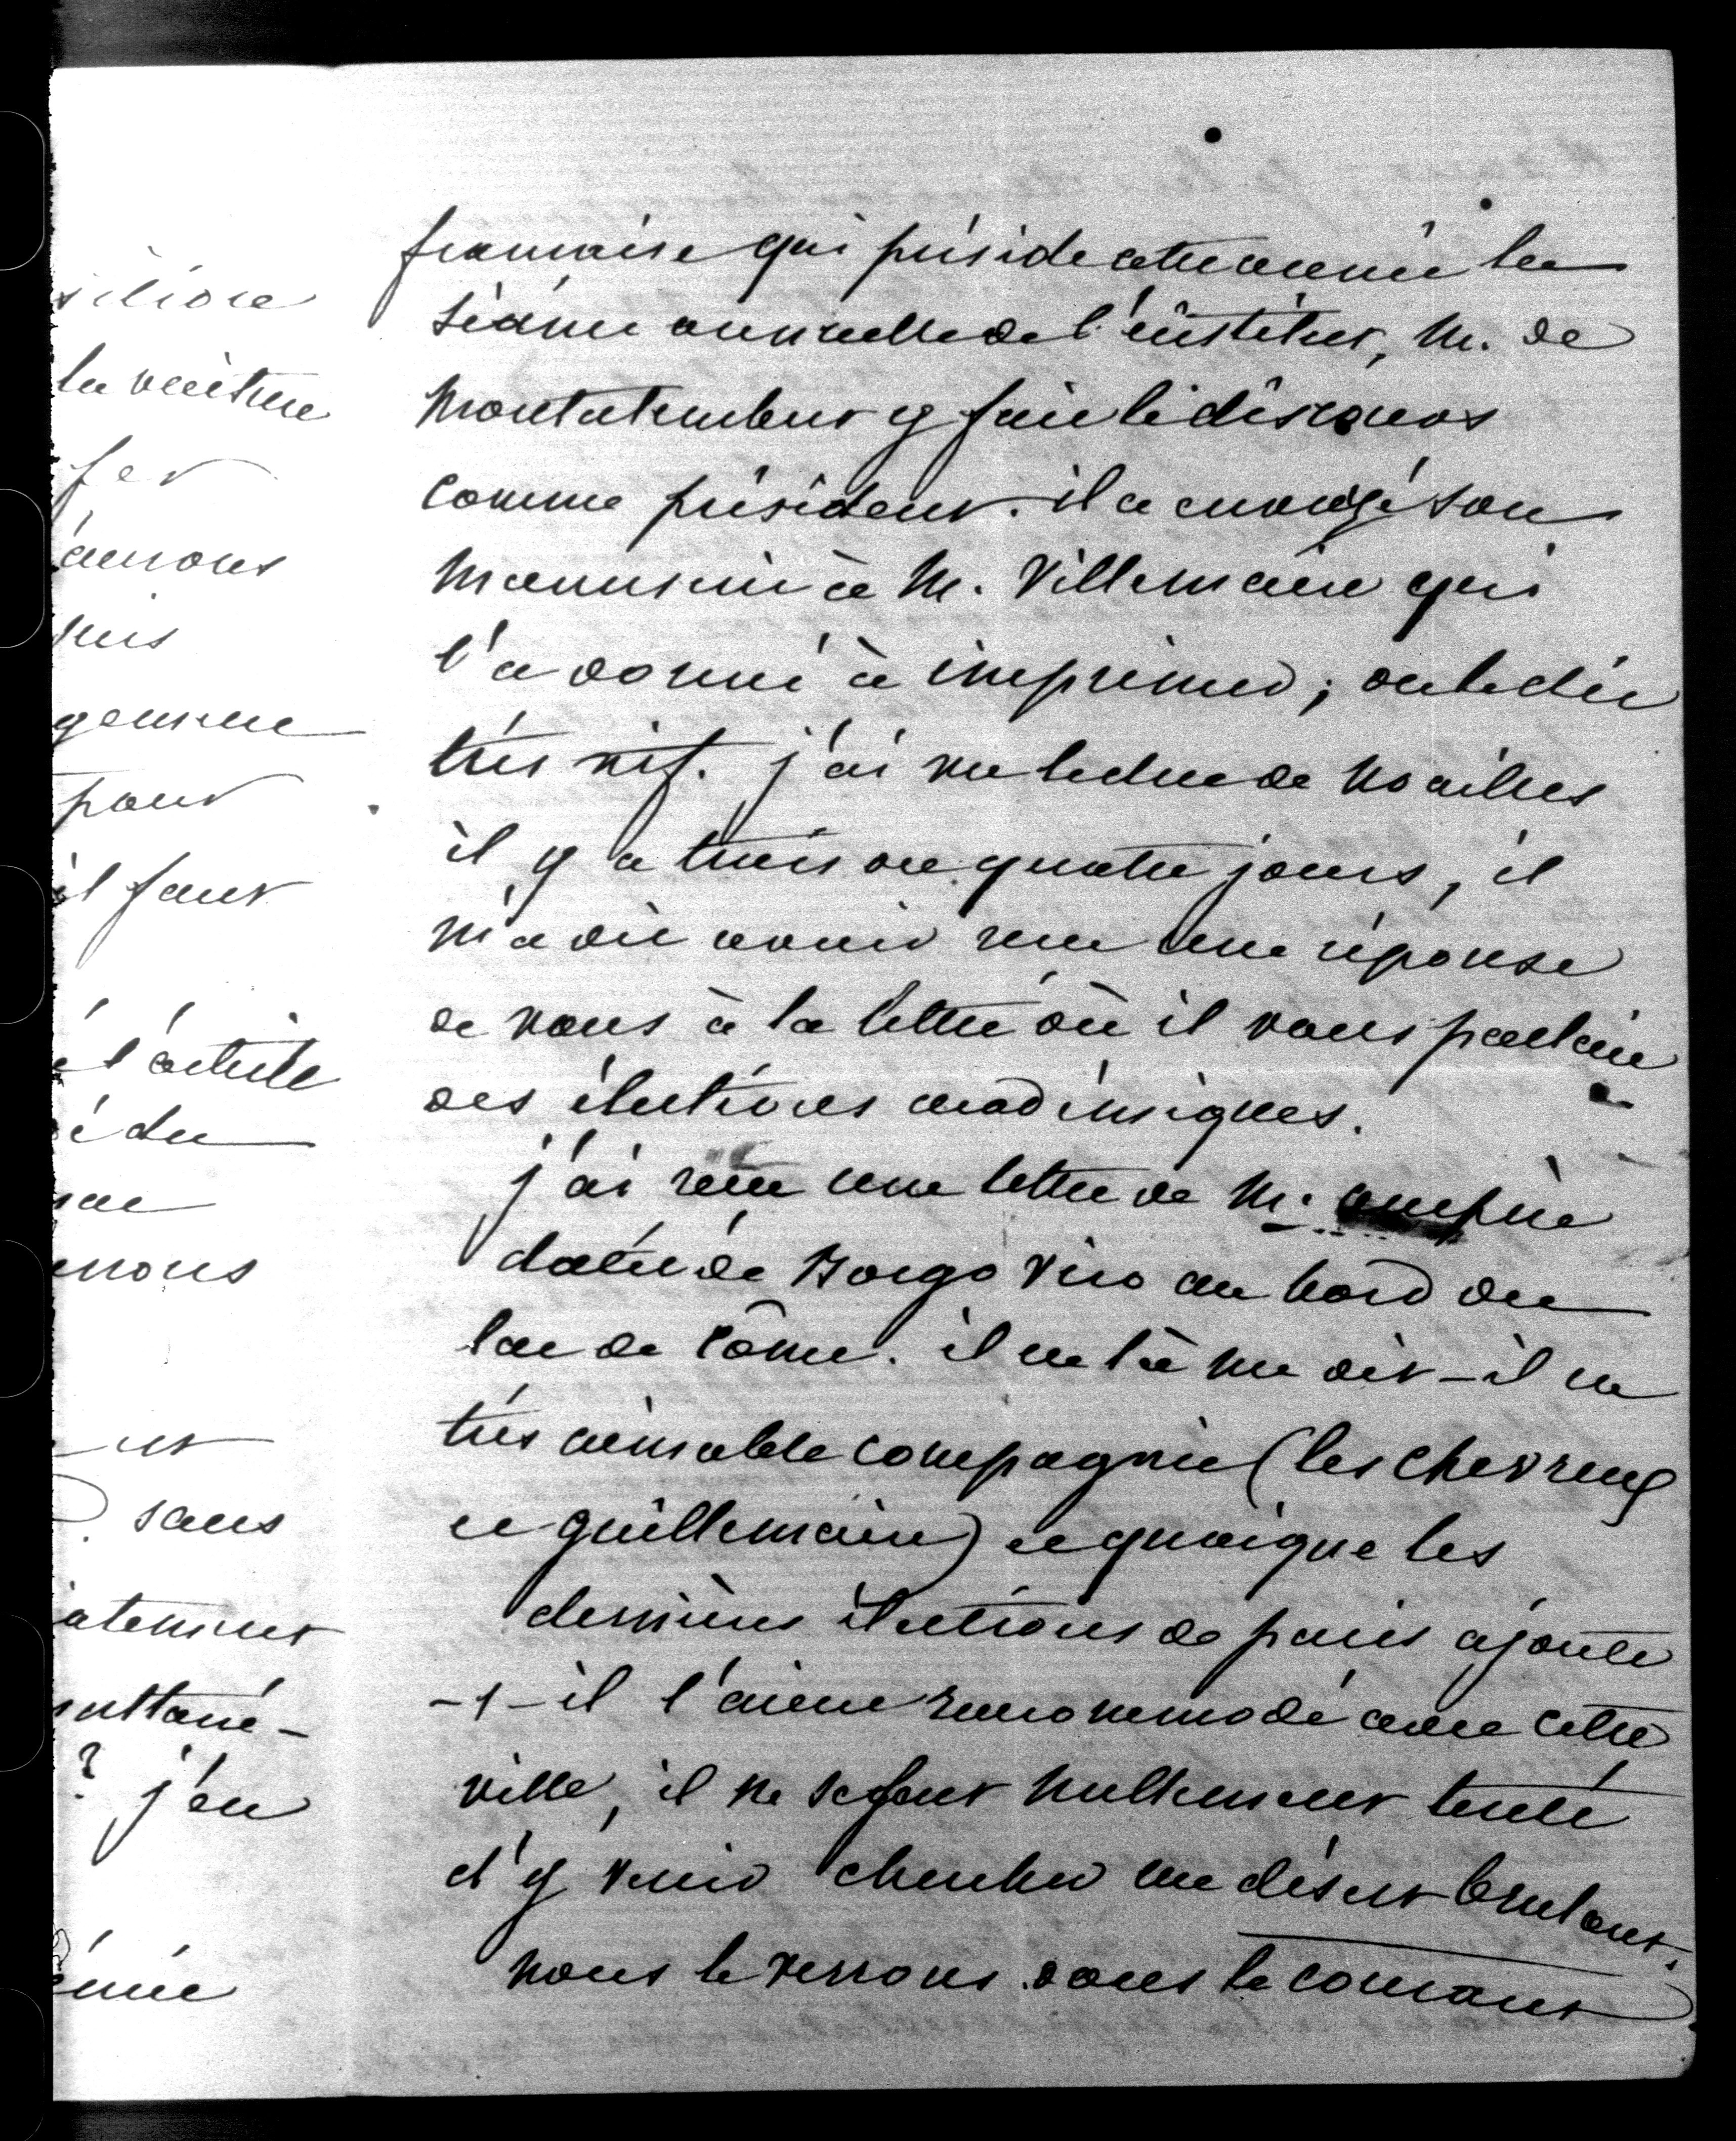 française qui préside cette année la
séance annuelle de l'institut, M. de
Montalembert y fait le discours
comme président. il a envoyé son
manuscrit à M. Villemain qui
l'a donné à imprimer ; on le dit
très vif. j'ai vu le duc de Noailles
il y a trois ou quatre jours, il
m'a dit avoir reçu une réponse
de vous à la lettre où il vous parlait
des élections académiques.
j'ai reçu une lettre de M. ampère
datée de Borgo Vico au bord du
lac de Côme. il est là me dit-il en
très aimable compagnie (les Chevreux
et guillemain) et quoique les
dernières élections de paris ajoute
-t-il l'aient raccommodé avec cette
ville, il ne se sent nullement tenté
d'y venir chercher un désert brulant.
nous le verrons dans le courant
la voiture
fer
pour
il faut
l'article
é du
sans
? j'en